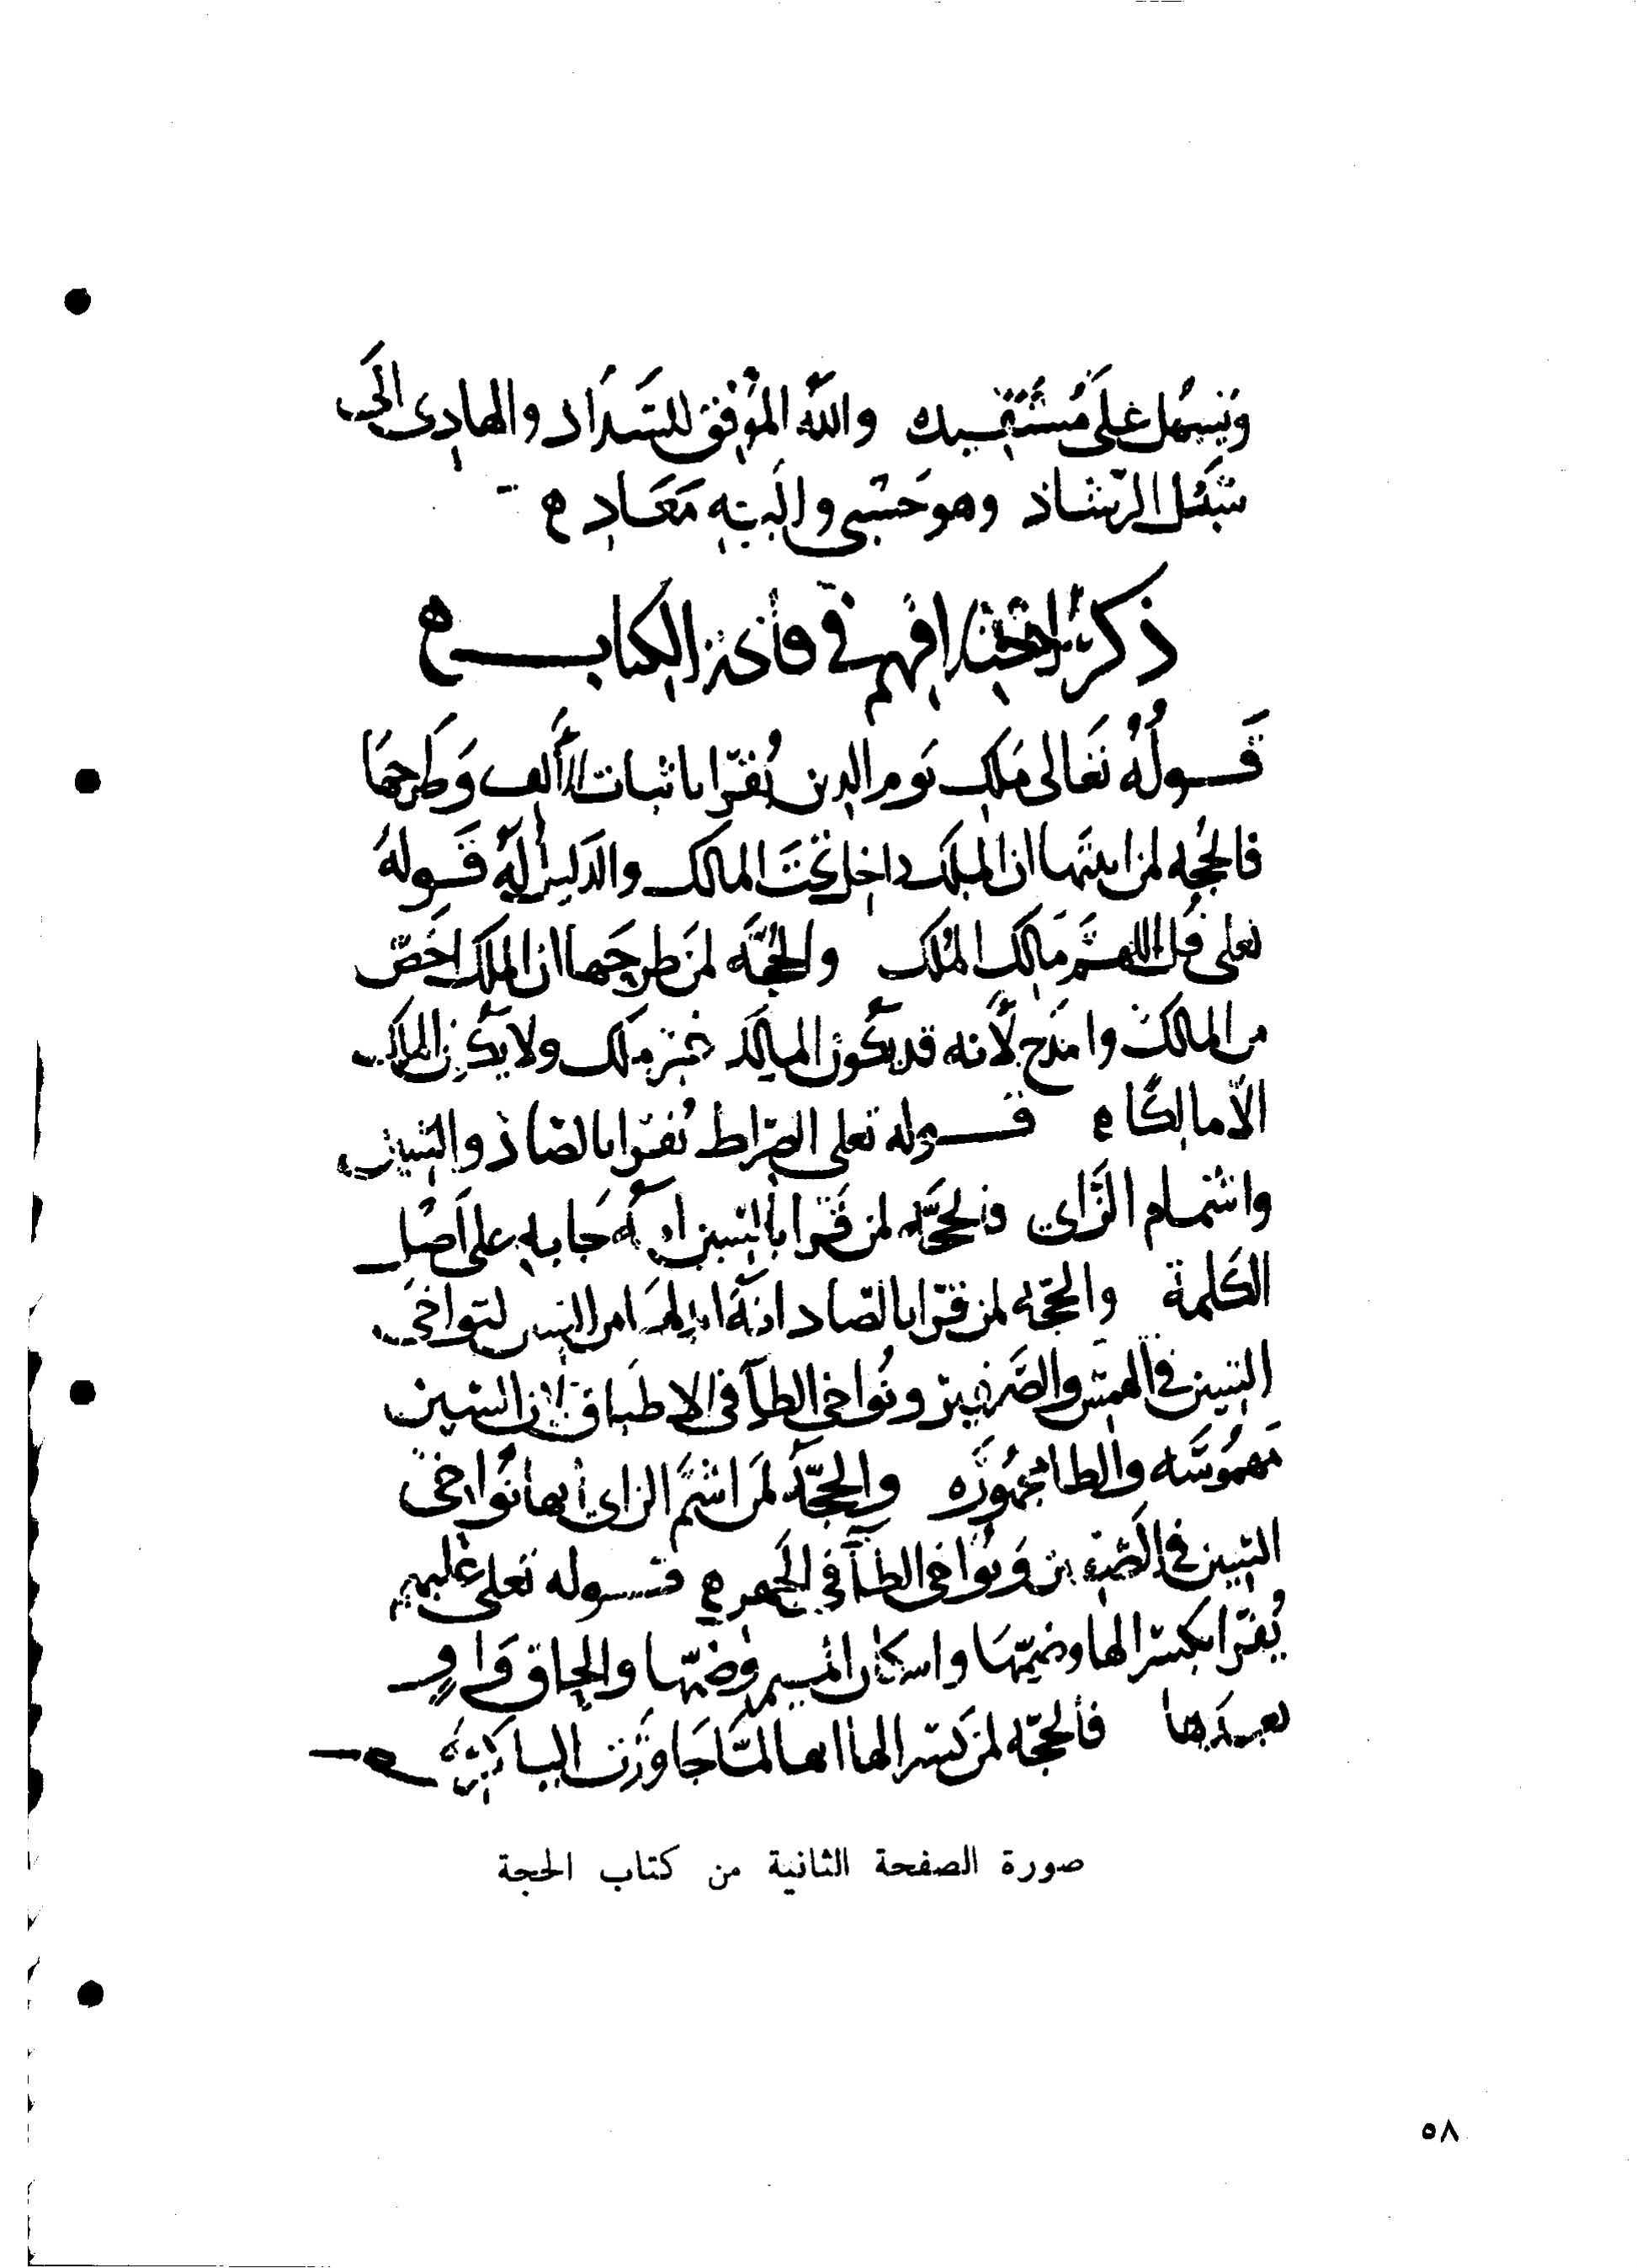 ويسهل على مستفيده والله الموفق للسداد والهادي الى
سبيل الرشاد وهو حسبي واليه معاد ه
ذكر اختلافهم في فاتحة الكتاب ه
قوله تعالى ملك يوم الدين يُقرا باثبات الألف وطرحها
فالحجه لمن اثبتها ان الملك داخل تحت المالك والدليل له قوله
تعلى قل اللهم مالك الملك والحجّة لمن طرحها ان الملك اخصّ
من المالك وامدح لأنه قد يكون المالك غير ملك ولا يكون الملك
الا مالكًا ه قوله تعلى الصراط يُقرا بالصاد والسين
واشمام الزاي فالحجّه لمن قرا بالسين انه جا به على اصل
الكلمة والحجّه لمن قرا بالصاد انه ابدلها من السين لتواخي
السين في الهمس والصفير وتُواخي الطآ في الاطباق لان السين
مهموسه والطا مجهوره والحجّه لمن اشمّ الزاي انها تُواخي
السين في الصفير وتُواخي الطآ في الجهر ه قوله تعلى عليهم
يُقرا بكسر الها وضمّها واسكان الميم وضمّها والحاق واوٍ
بعدها فالحجّه لمن كسر الها انها لمّا جاورت اليا
صورة الصفحة الثانية من كتاب الحجة
٥٨